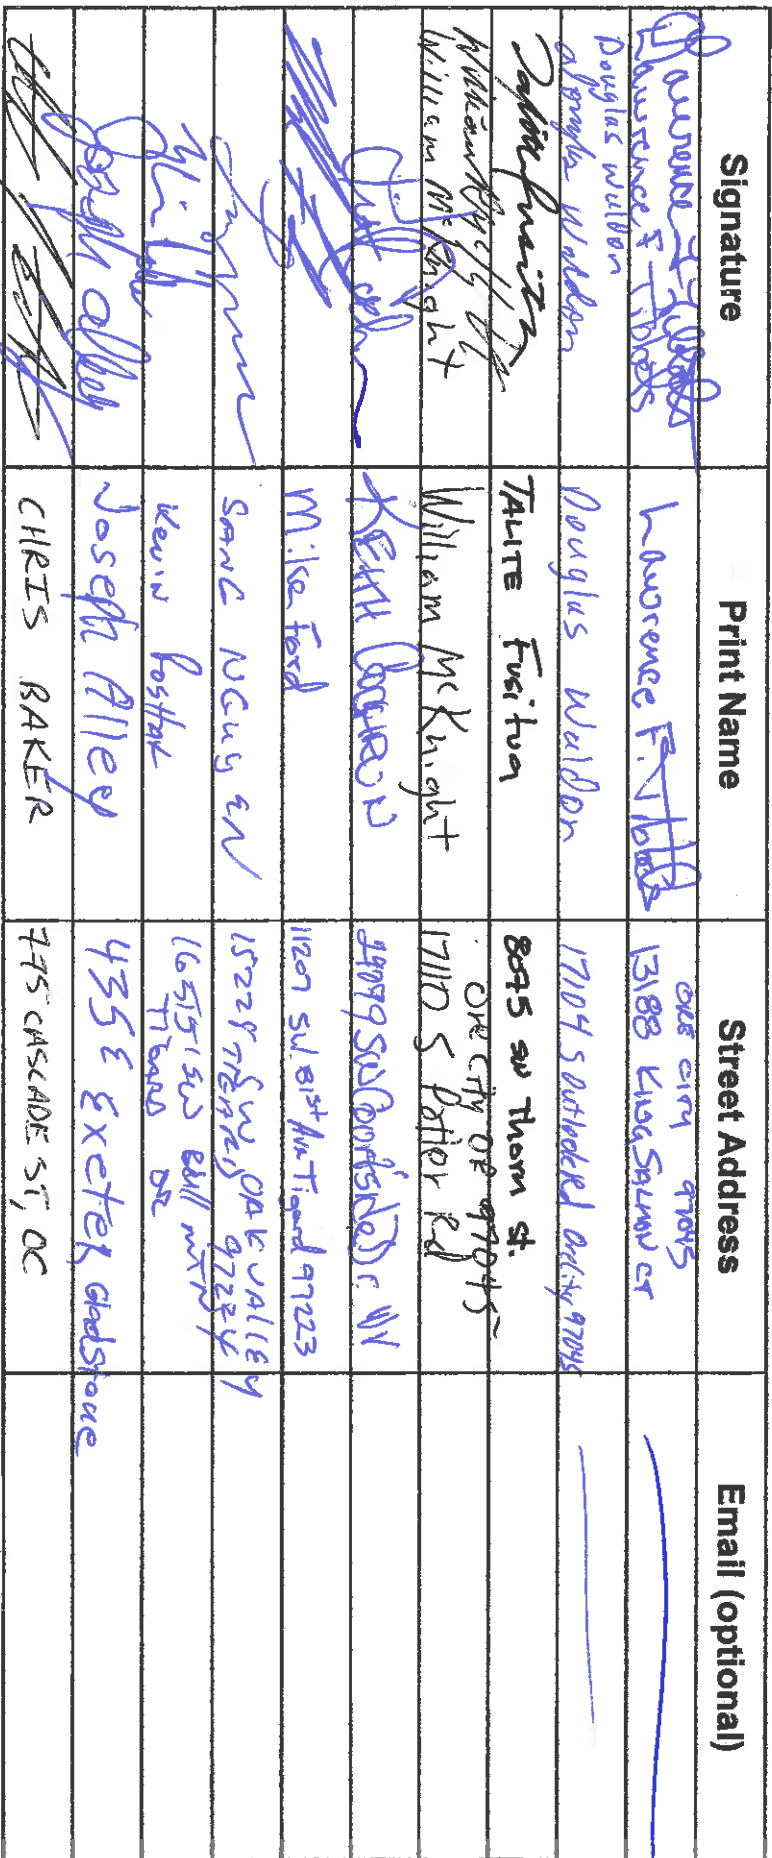 Signature Print Name Street Address Email (optional)
Lawrence F Tibbets
Lawrence F. Tibbets
ORE CITY 97045
13188 KING SALMON CT
Douglas Waldon
Douglas Waldon
Douglas Waldon
17104 S Outlook Rd Orcity 97045
TALITE Fusitua
8075 SW Thorn St.
William McKnight
William McKnight
William McKnight
ORE CITY OR 97045
17110 S Potter Rd
KEITH COCHRUN
Mike Ford
11207 SW. 81st Ave Tigard 97223
SANG NGUYEN
15228 SW OAK VALLEY
TIGARD 97224
Kevin
16515 SW Bull MTN
TIGARD OR
Joseph Alley
Joseph Alley
435 E Exeter, Gladstone
CHRIS BAKER
775 CASCADE ST, OC